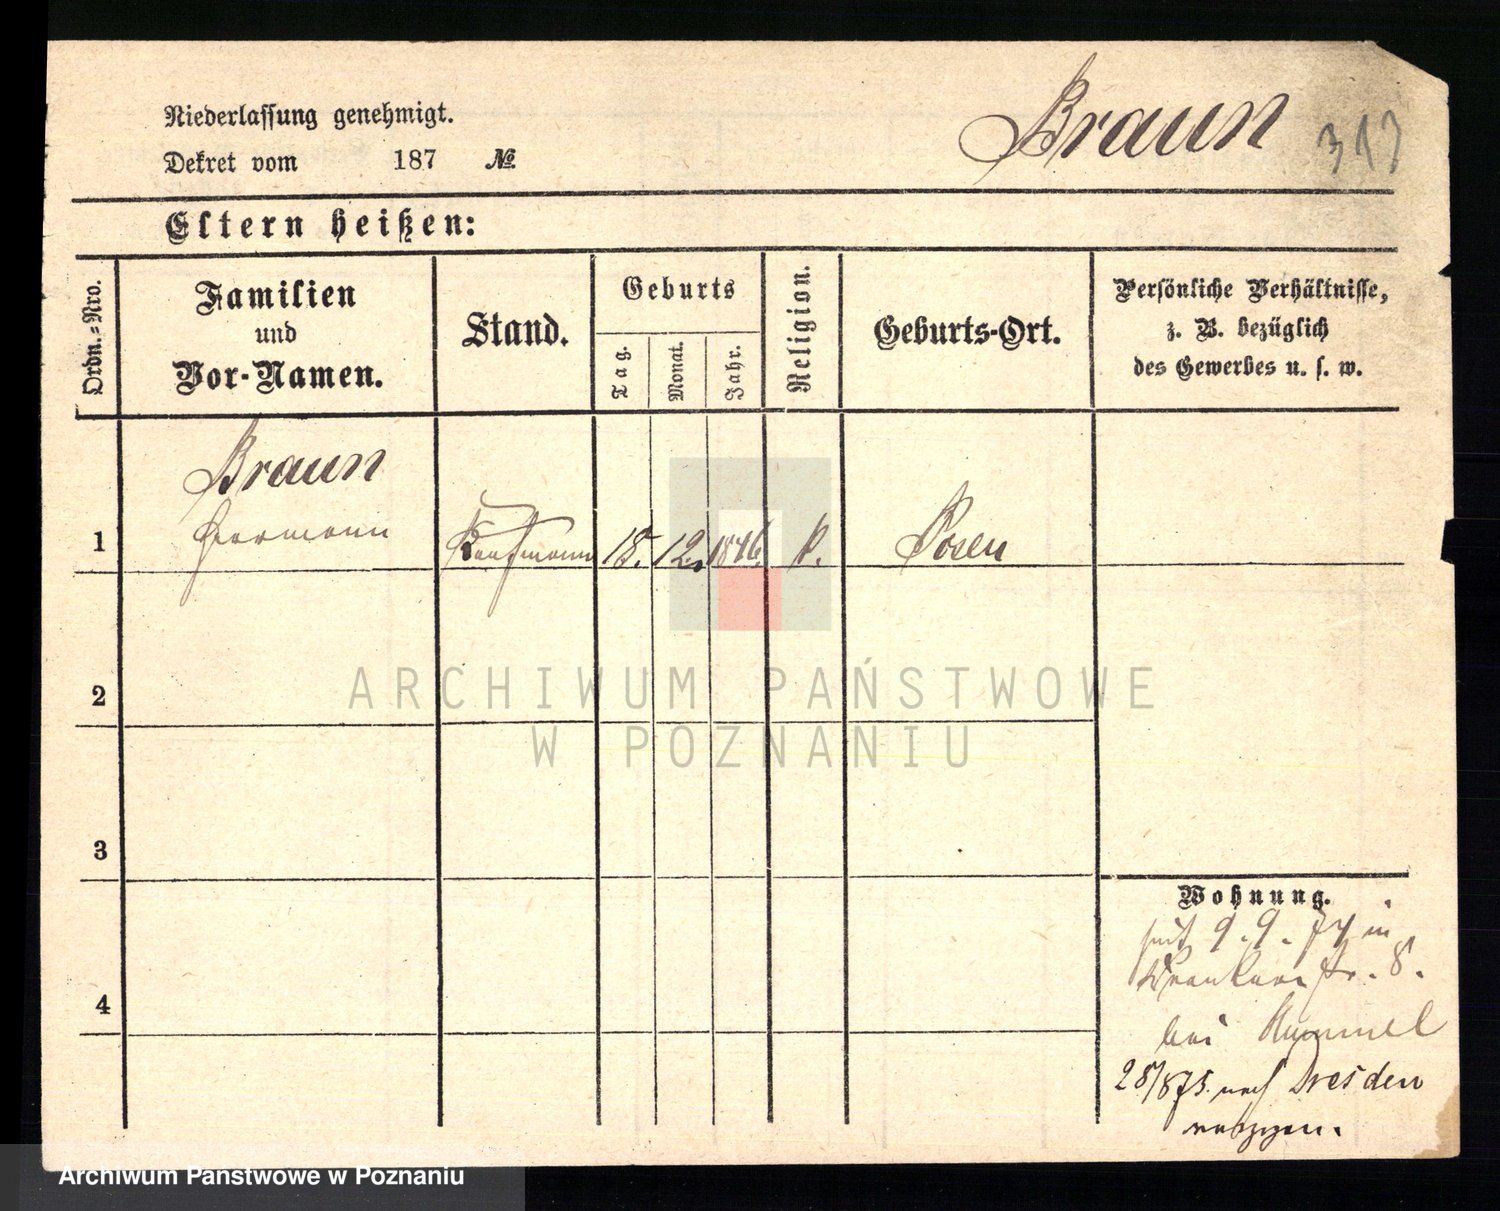 Niederlassung genehmigt.
Dekret vom 187 №
Braun
Eltern heißen:
Ordn.-Nro.
Familien
und
Vor-Namen.
Stand.
Geburts
Tag.
Monat.
Jahr.
Religion.
Geburts-Ort.
Persönliche Verhältnisse,
z. B. bezüglich
des Gewerbes u. s. w.
Braun
1 Hermann Kaufmann 18. 12. 1846 Posen
2
ARCHIWUM PAŃSTWOWE
W POZNANIU
3
Wohnung.
seit 9. 9. 74 in
str. 8.
bei Hummel
28/8 75. nach Dresden
4
Archiwum Państwowe w Poznaniu